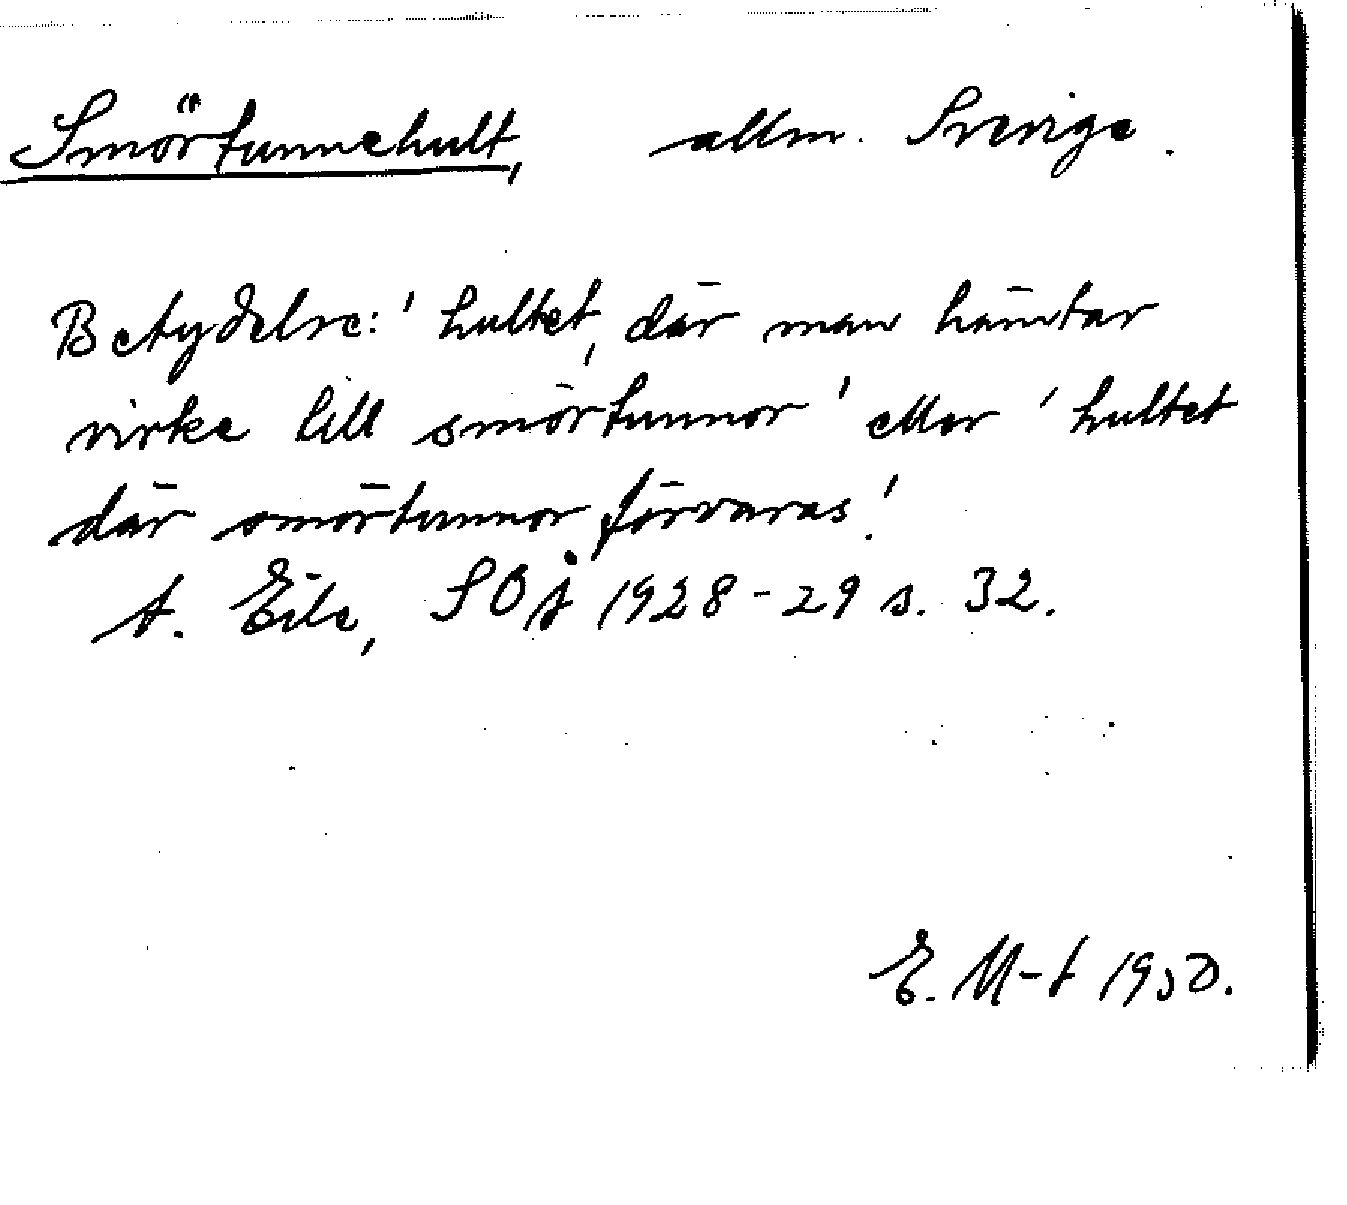 Smörtunnehult, allm. Sverige.
Betydelse: 'hultet, där man hämtar
virke till smörtunnor' eller 'hultet
där smörtunnor förvaras'.
A. Ejle, SOÅ 1928-29 s. 32.
E. M-t 1950.